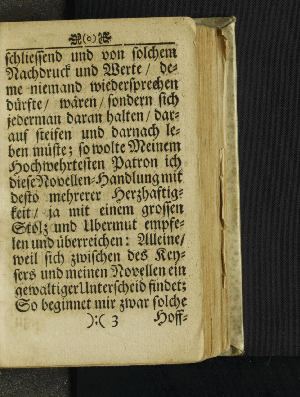 (o)
schliessend und von solchem
Nachdruck und Werte / de-
me niemand wiedersprechen
dürfte / wären / sondern sich
jederman daran halten / dar-
auf steifen und darnach le-
ben müste; so wolte Meinem
Hochwehrtesten Patron ich
diese Novellen-Handlung mit
desto mehrerer Herzhaftig-
keit / ja mit einem grossen
Stolz und Ubermut empfe-
len und überreichen: Alleine /
weil sich zwischen des Key-
sers und meinen Novellen ein
gewaltiger Unterscheid findet;
So beginnet mir zwar solche
):( 3 Hoff-